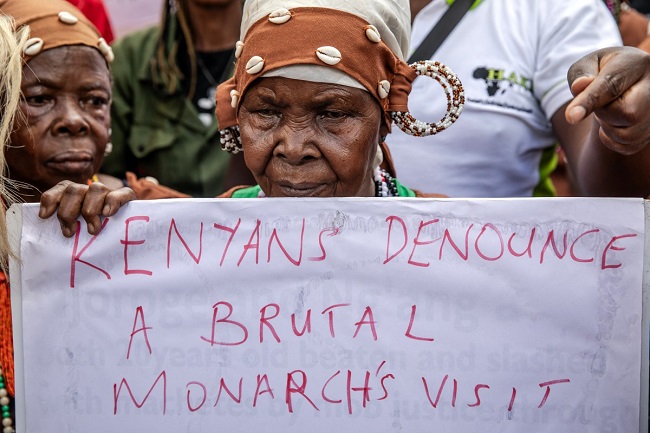 KENYANS DENOUNCE
A BRUTAL
MONARCH'S VISIT